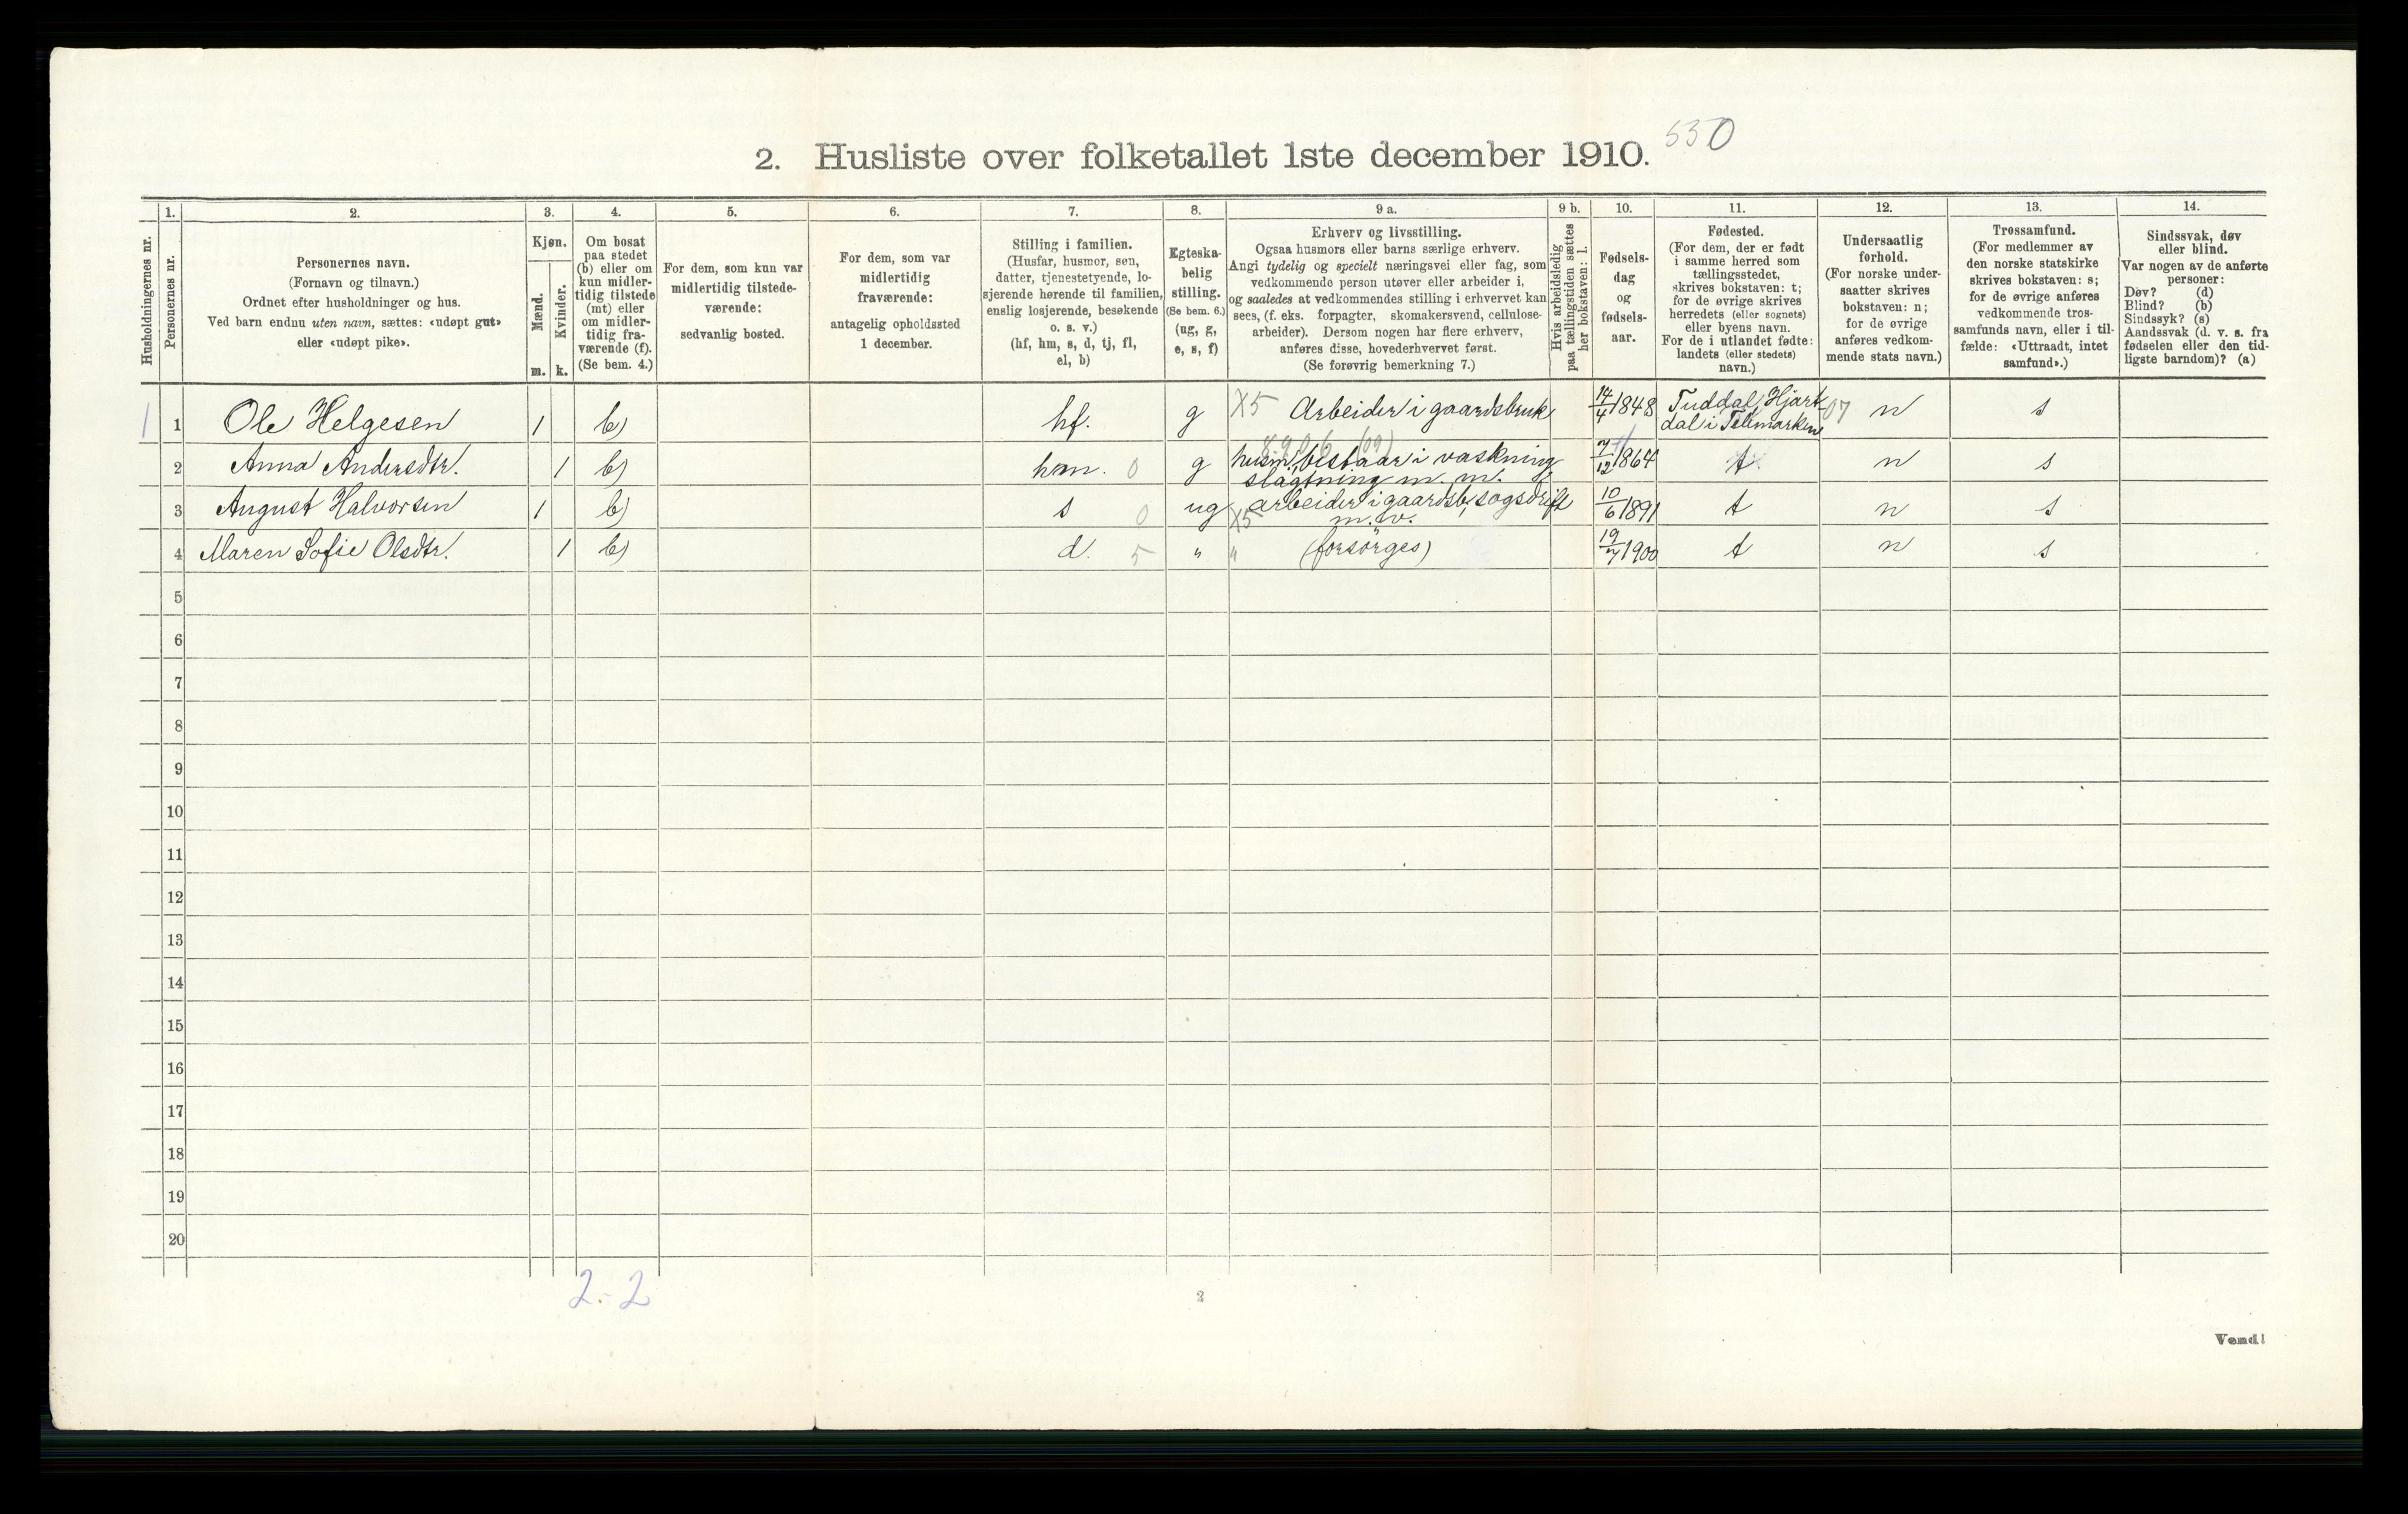 2. Husliste over folketallet 1ste december 1910. 550
Husholdningernes nr.
1.
Personernes nr.
2.
Personernes navn.
(Fornavn og tilnavn.)
Ordnet efter husholdninger og hus.
Ved barn endnu uten navn, sættes: «udøpt gut»
eller «udøpt pike».
3.
Kjøn.
Mænd.
m.
Kvinder.
k.
4.
Om bosat
paa stedet
(b) eller om
kun midler-
tidig tilstede
(mt) eller
om midler-
tidig fra-
værende (f).
(Se bem. 4.)
5.
For dem, som kun var
midlertidig tilstede-
værende:
sedvanlig bosted.
6.
For dem, som var
midlertidig
fraværende:
antagelig opholdssted
1 december.
7.
Stilling i familien.
(Husfar, husmor, søn,
datter, tjenestetyende, lo-
sjerende hørende til familien,
enslig losjerende, besøkende
o. s. v.)
(hf, hm, s, d, tj, fl,
el, b)
8.
Egteska-
belig
stilling.
(Se bem. 6.)
(ug, g,
e, s, f)
9 a.
Erhverv og livsstilling.
Ogsaa husmors eller barns særlige erhverv.
Angi tydelig og specielt næringsvei eller fag, som
vedkommende person utøver eller arbeider i,
og saaledes at vedkommendes stilling i erhvervet kan
sees, (f. eks. forpagter, skomakersvend, cellulose-
arbeider). Dersom nogen har flere erhverv,
anføres disse, hovederhvervet først.
(Se forøvrig bemerkning 7.)
9 b.
Hvis arbeidsledig
paa tællingstiden sættes
her bokstaven: l.
10.
Fødsels-
dag
og
fødsels-
aar.
11.
Fødested.
(For dem, der er født
i samme herred som
tællingsstedet,
skrives bokstaven: t;
for de øvrige skrives
herredets (eller sognets)
eller byens navn.
For de i utlandet fødte:
landets (eller stedets)
navn.)
12.
Undersaatlig
forhold.
(For norske under-
saatter skrives
bokstaven: n;
for de øvrige
anføres vedkom-
mende stats navn.)
13.
Trossamfund.
(For medlemmer av
den norske statskirke
skrives bokstaven: s;
for de øvrige anføres
vedkommende tros-
samfunds navn, eller i til-
fælde: «Uttraadt, intet
samfund».)
14.
Sindssvak, døv
eller blind.
Var nogen av de anførte
personer:
Døv? (d)
Blind? (b)
Sindssyk? (s)
Aandssvak (d. v. s. fra
fødselen eller den tid-
ligste barndom)? (a)
1 1 Ole Helgesen 1 b) hf. g X5 Arbeider i gaardsbruk 14/4 1848 Tuddal, Hjart- 07 n s
dal i Telemarken
2 Anna Andersdtr. 1 b) hm. 0 g husm, bistaar i vaskning 7/12 1864 t n s
slagtning m. m.
3 August Halvorsen 1 b) s 0 ug X5 arbeider i gaardsb, sogsdrift 10/6 1891 t n s
m. v.
4 Maren Sofie Olsdtr. 1 b) d. 5 " " (forsörges) 19/7 1900 t n s
5
6
7
8
9
10
11
12
13
14
15
16
17
18
19
20
2 - 2
2
Vend!